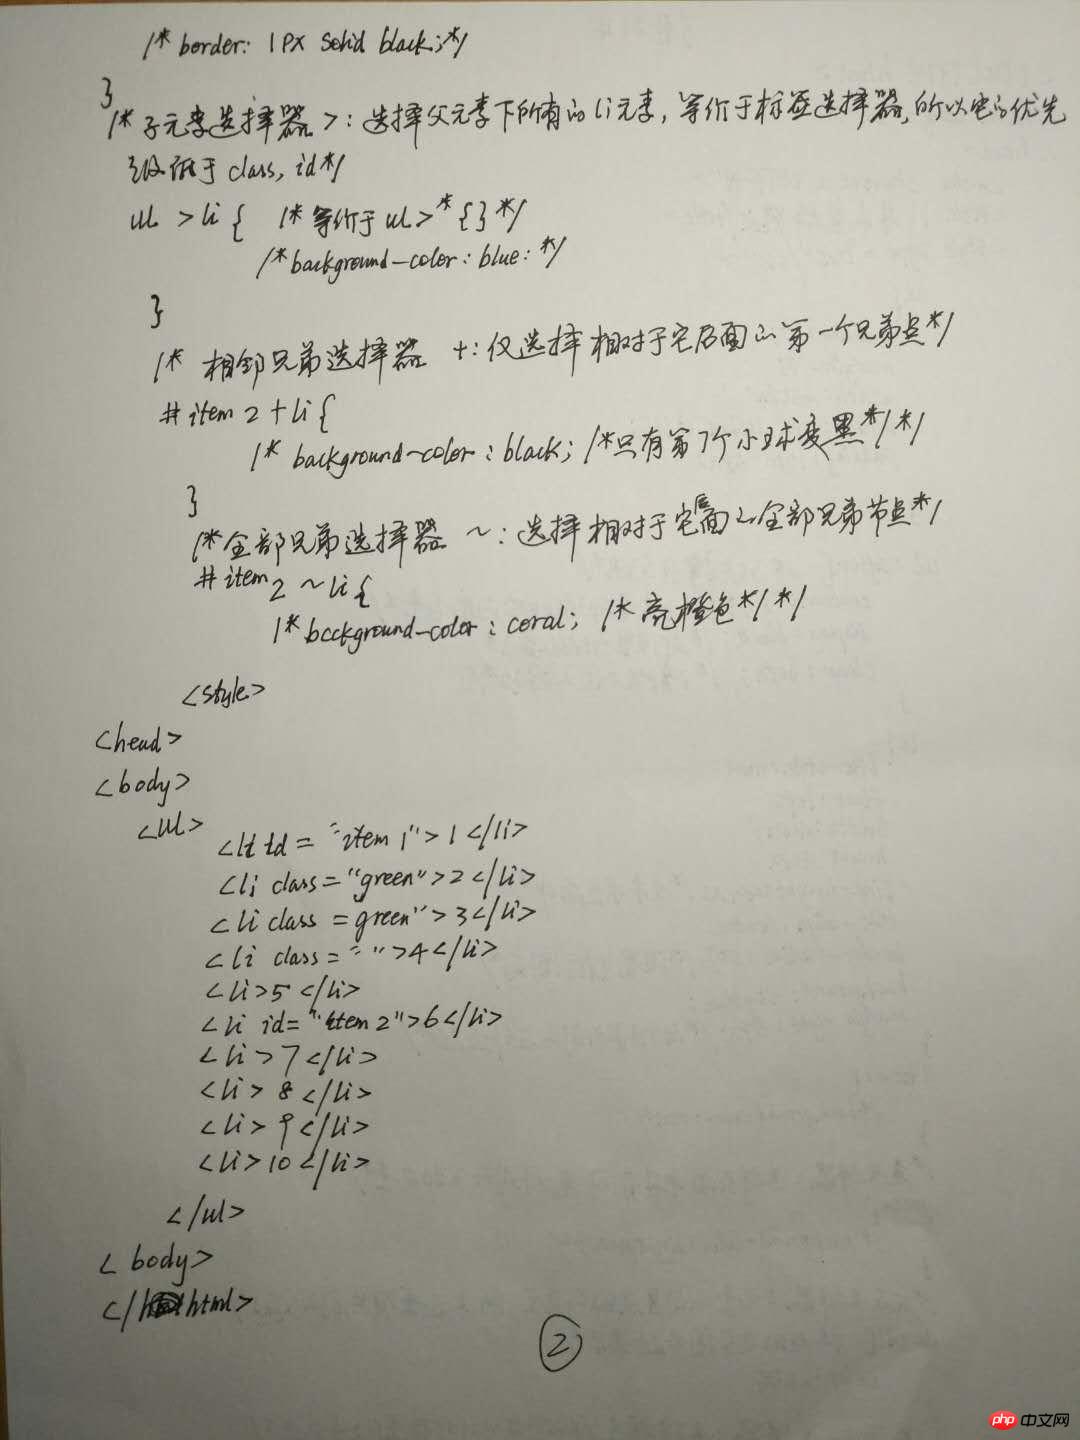 /* border: 1px solid black; */
}
/* 子元素选择器 >: 选择父元素下所有的li元素, 等价于标签选择器, 所以它的优先
级低于 class, id */
ul > li { /* 等价于 ul > * { } */
/* background-color: blue: */
}
/* 相邻兄弟选择器 +: 仅选择相对于它后面的第一个兄弟点 */
# item 2 + li {
/* background-color: black; /* 只有第7个小球变黑 */ */
}
/* 全部兄弟选择器 ~: 选择相对于它后面的全部兄弟节点 */
# item 2 ~ li {
/* bcckground-color: coral; /* 亮橙色 */ */
<style>
<head>
<body>
<ul>
<li id = "item 1"> 1 </li>
<li class = "green"> 2 </li>
<li class = green"> 3 </li>
<li class = " "> 4 </li>
<li> 5 </li>
<li id = "item 2"> 6 </li>
<li> 7 </li>
<li> 8 </li>
<li> 9 </li>
<li> 10 </li>
</ul>
< body>
</html>
2
php 中文网